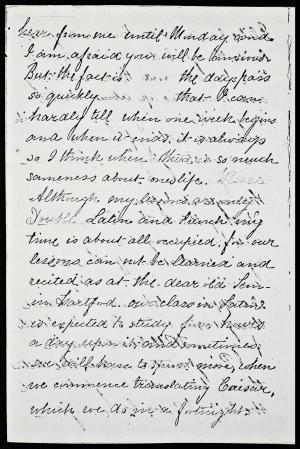 hear from me until Monday and
I am afraid you will be anxious
But the fact is the days pass
so quickly that I can
hardly tell when one week begins
and when it ends, it is always
so I think when there is so much
sameness about one's life.
Although my lessons are only
Double Latin and French my
time is about all occupied, for our
lessons can not be learned and
recited as at the dear old Sem-
in Hartford. our class in Latin
is expected to study four hours
a day upon it, and sometimes
we will have to spend more, when
we commence translating Caesar,
which we do in a fortnight.